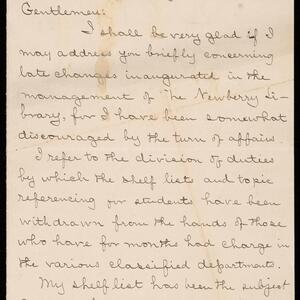 Gentlemen:
I shall be very glad if I
may address you briefly concerning
late changes inaugurated in the
management of The Newberry Li-
brary, for I have been somewhat
discouraged by the turn of affairs.
I refer to the division of duties
by which the shelf lists and topic
referencing our students have been
withdrawn from the hands of those
who have for months had charge in
the various classified departments.
My shelf list has been the subject